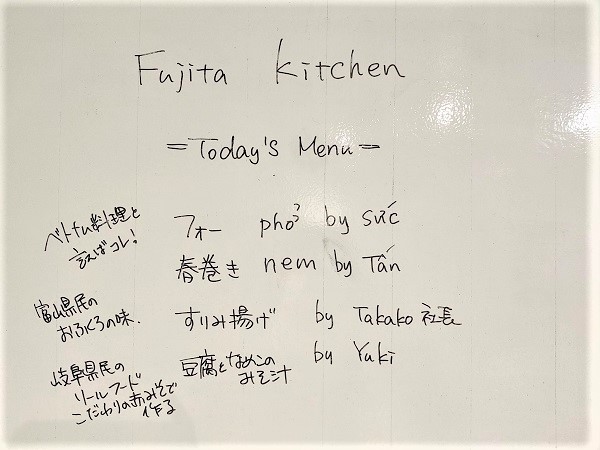 Fujita kitchen
=Today's Menu=
ベトナム料理と
言えばコレ!
フォー phở by sức
春巻き nem by Tấn
富山県民の
おふくろの味.
すりみ揚げ by Takako 社長
岐阜県民の
ソールフード
こだわりの赤みそで
作る
豆腐となめこの
みそ汁 by Yuki